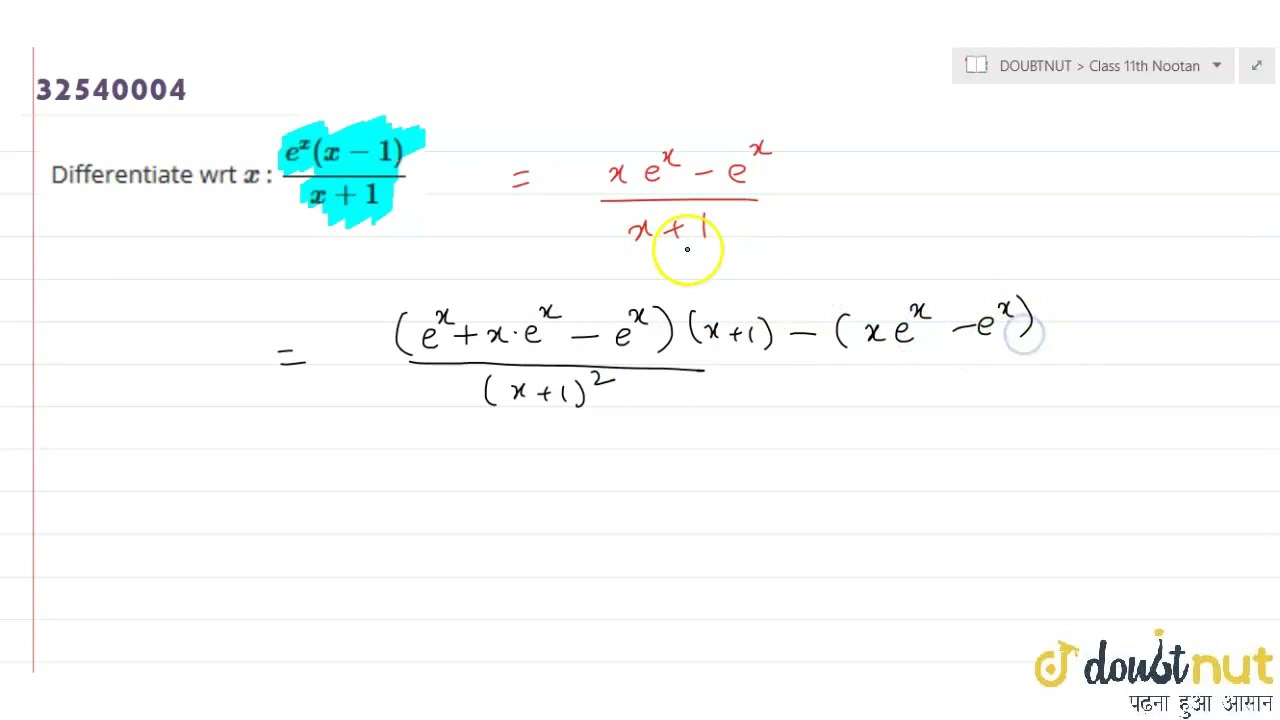 DOUBTNUT > Class 11th Nootan
32540004
Differentiate wrt x : e^x(x − 1) / x + 1 = x e^x − e^x / x + 1
= (e^x + x · e^x − e^x) (x + 1) − (x e^x − e^x) / (x + 1)^2
doubtnut
पढ़ना हुआ आसान